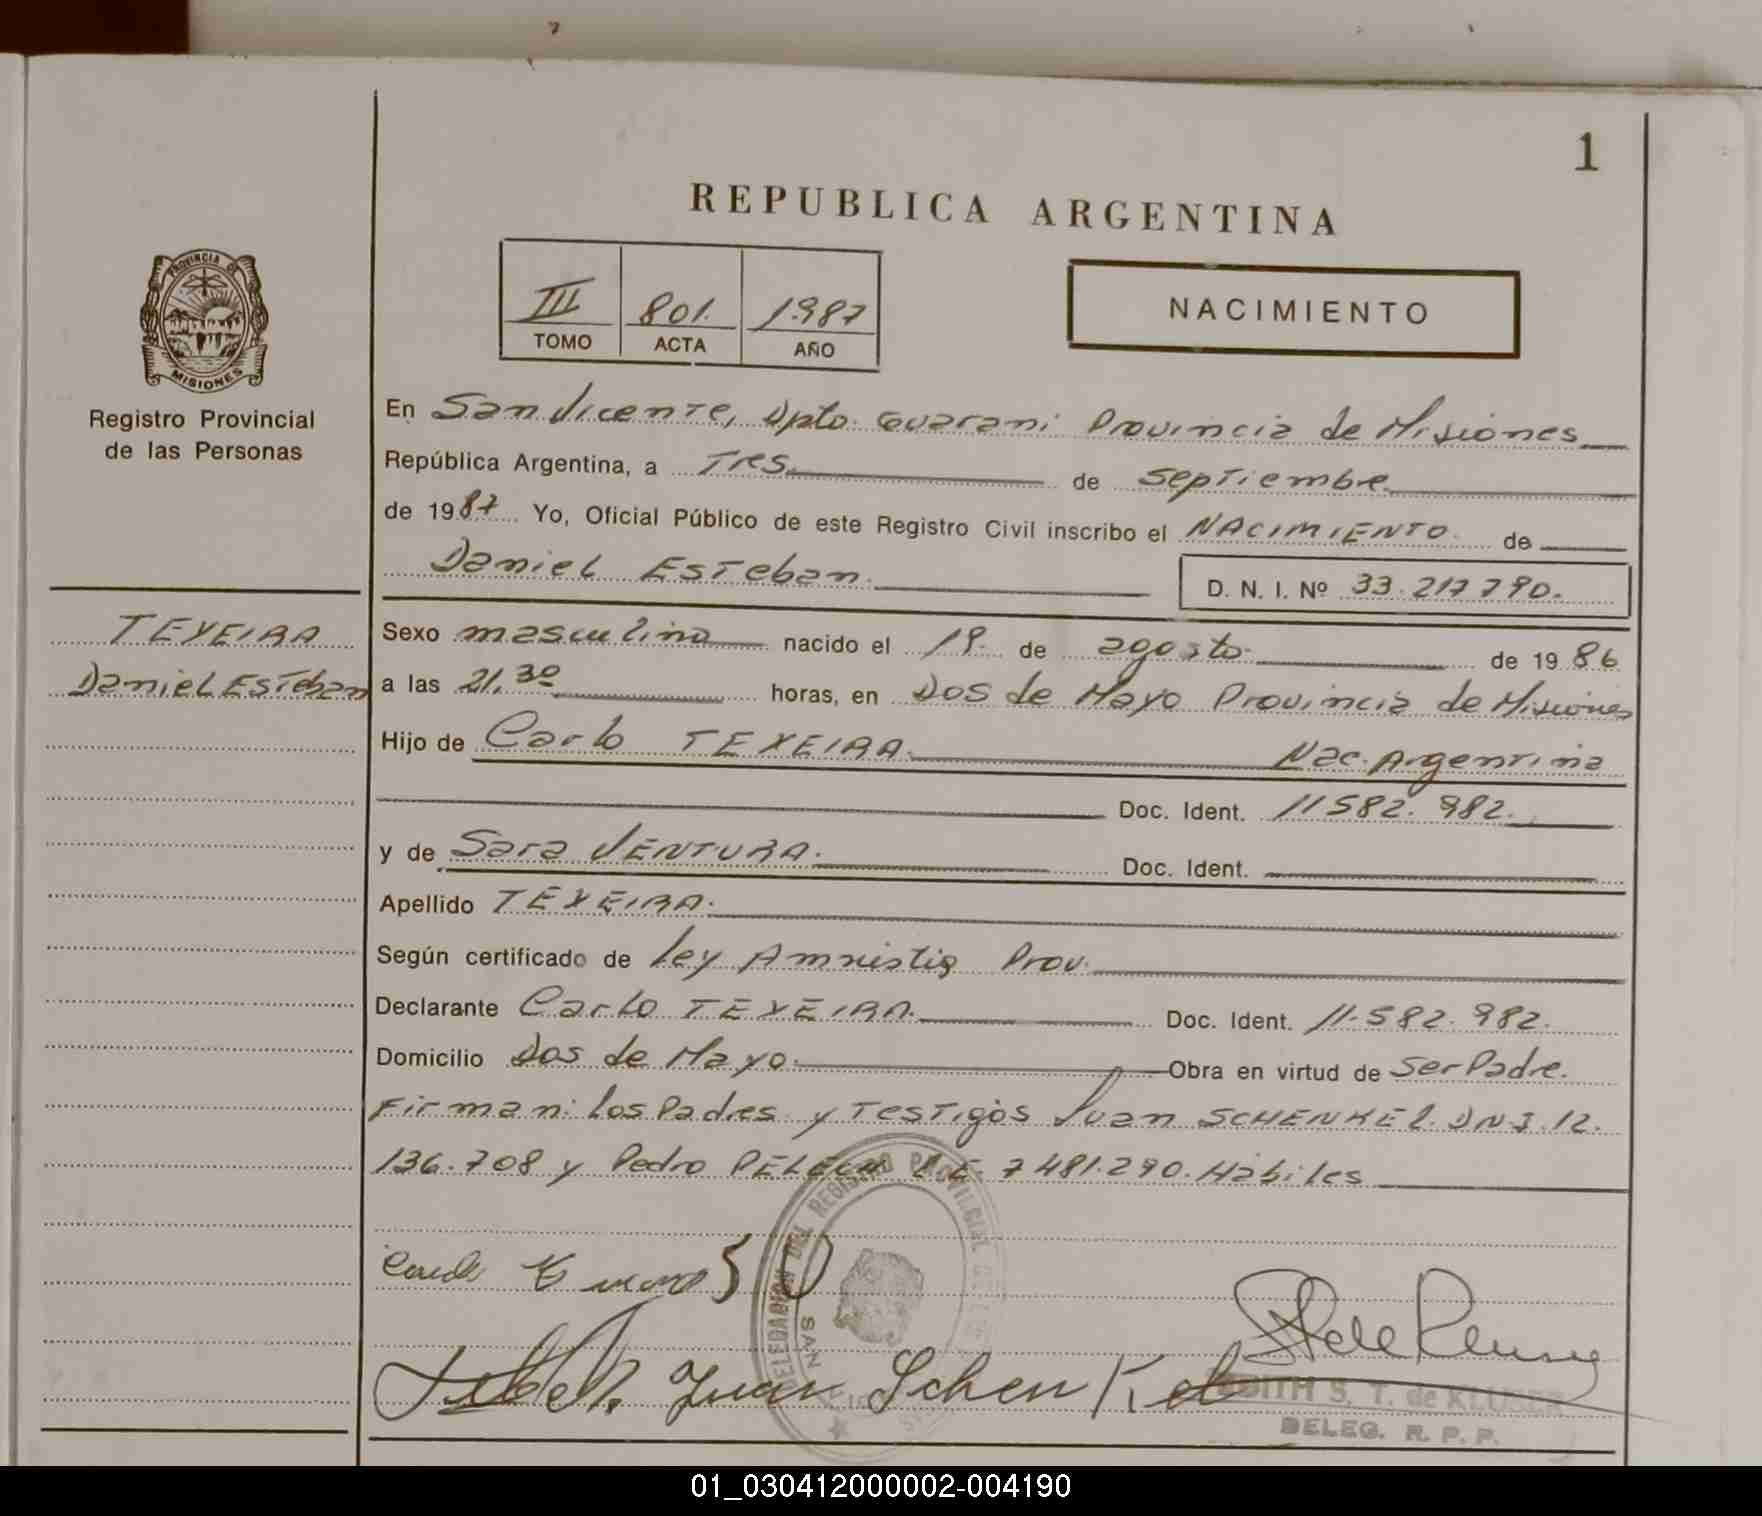 1
REPUBLICA ARGENTINA
PROVINCIA DE
MISIONES
Registro Provincial
de las Personas
III 801. 1987
TOMO ACTA AÑO
NACIMIENTO
En San Vicente, Dpto. Guarani Provincia de Misiones
República Argentina, a Tres de Septiembre
de 1987 Yo, Oficial Público de este Registro Civil inscribo el NACIMIENTO de
Daniel Esteban.
D. N. I. Nº 33.217790.
TEXEIRA
Daniel Esteban
Sexo masculino nacido el 19. de agosto. de 1986
a las 21,30 horas, en Dos de Mayo Provincia de Misiones
Hijo de Carlo TEXEIRA. Nac. Argentina
Doc. Ident. 11582.982.
y de Sara VENTURA. Doc. Ident.
Apellido TEXEIRA.
Según certificado de Ley Amnistia Prov.
Declarante Carlo TEXEIRA. Doc. Ident. 11.582.982.
Domicilio Dos de Mayo. Obra en virtud de ser Padre.
Firman: los Padres y Testigos Juan SCHENKEL. DNI. 12.
136.708 y Pedro L.E. 7481.290. Hábiles
DELEGACION DEL REGISTRO PROVINCIAL
SAN
Juan Schenkel
EDITH S. T. de KLUSER
DELEG. R. P. P.
01_030412000002-004190